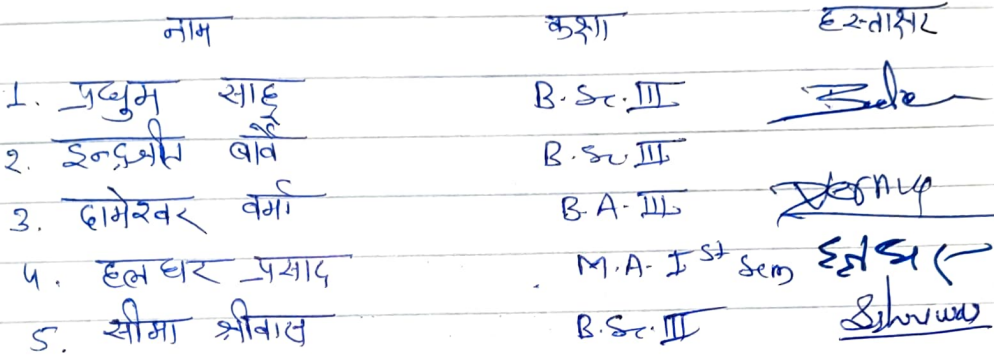 नाम कक्षा हस्ताक्षर
1. प्रद्युम साहू B.Sc.III
2. इन्द्रजीत B.Sc.III
3. दामेश्वर वर्मा B.A-III
4. हलधर प्रसाद M.A-Ist Sem
5. सीमा श्रीवास B.Sc.III